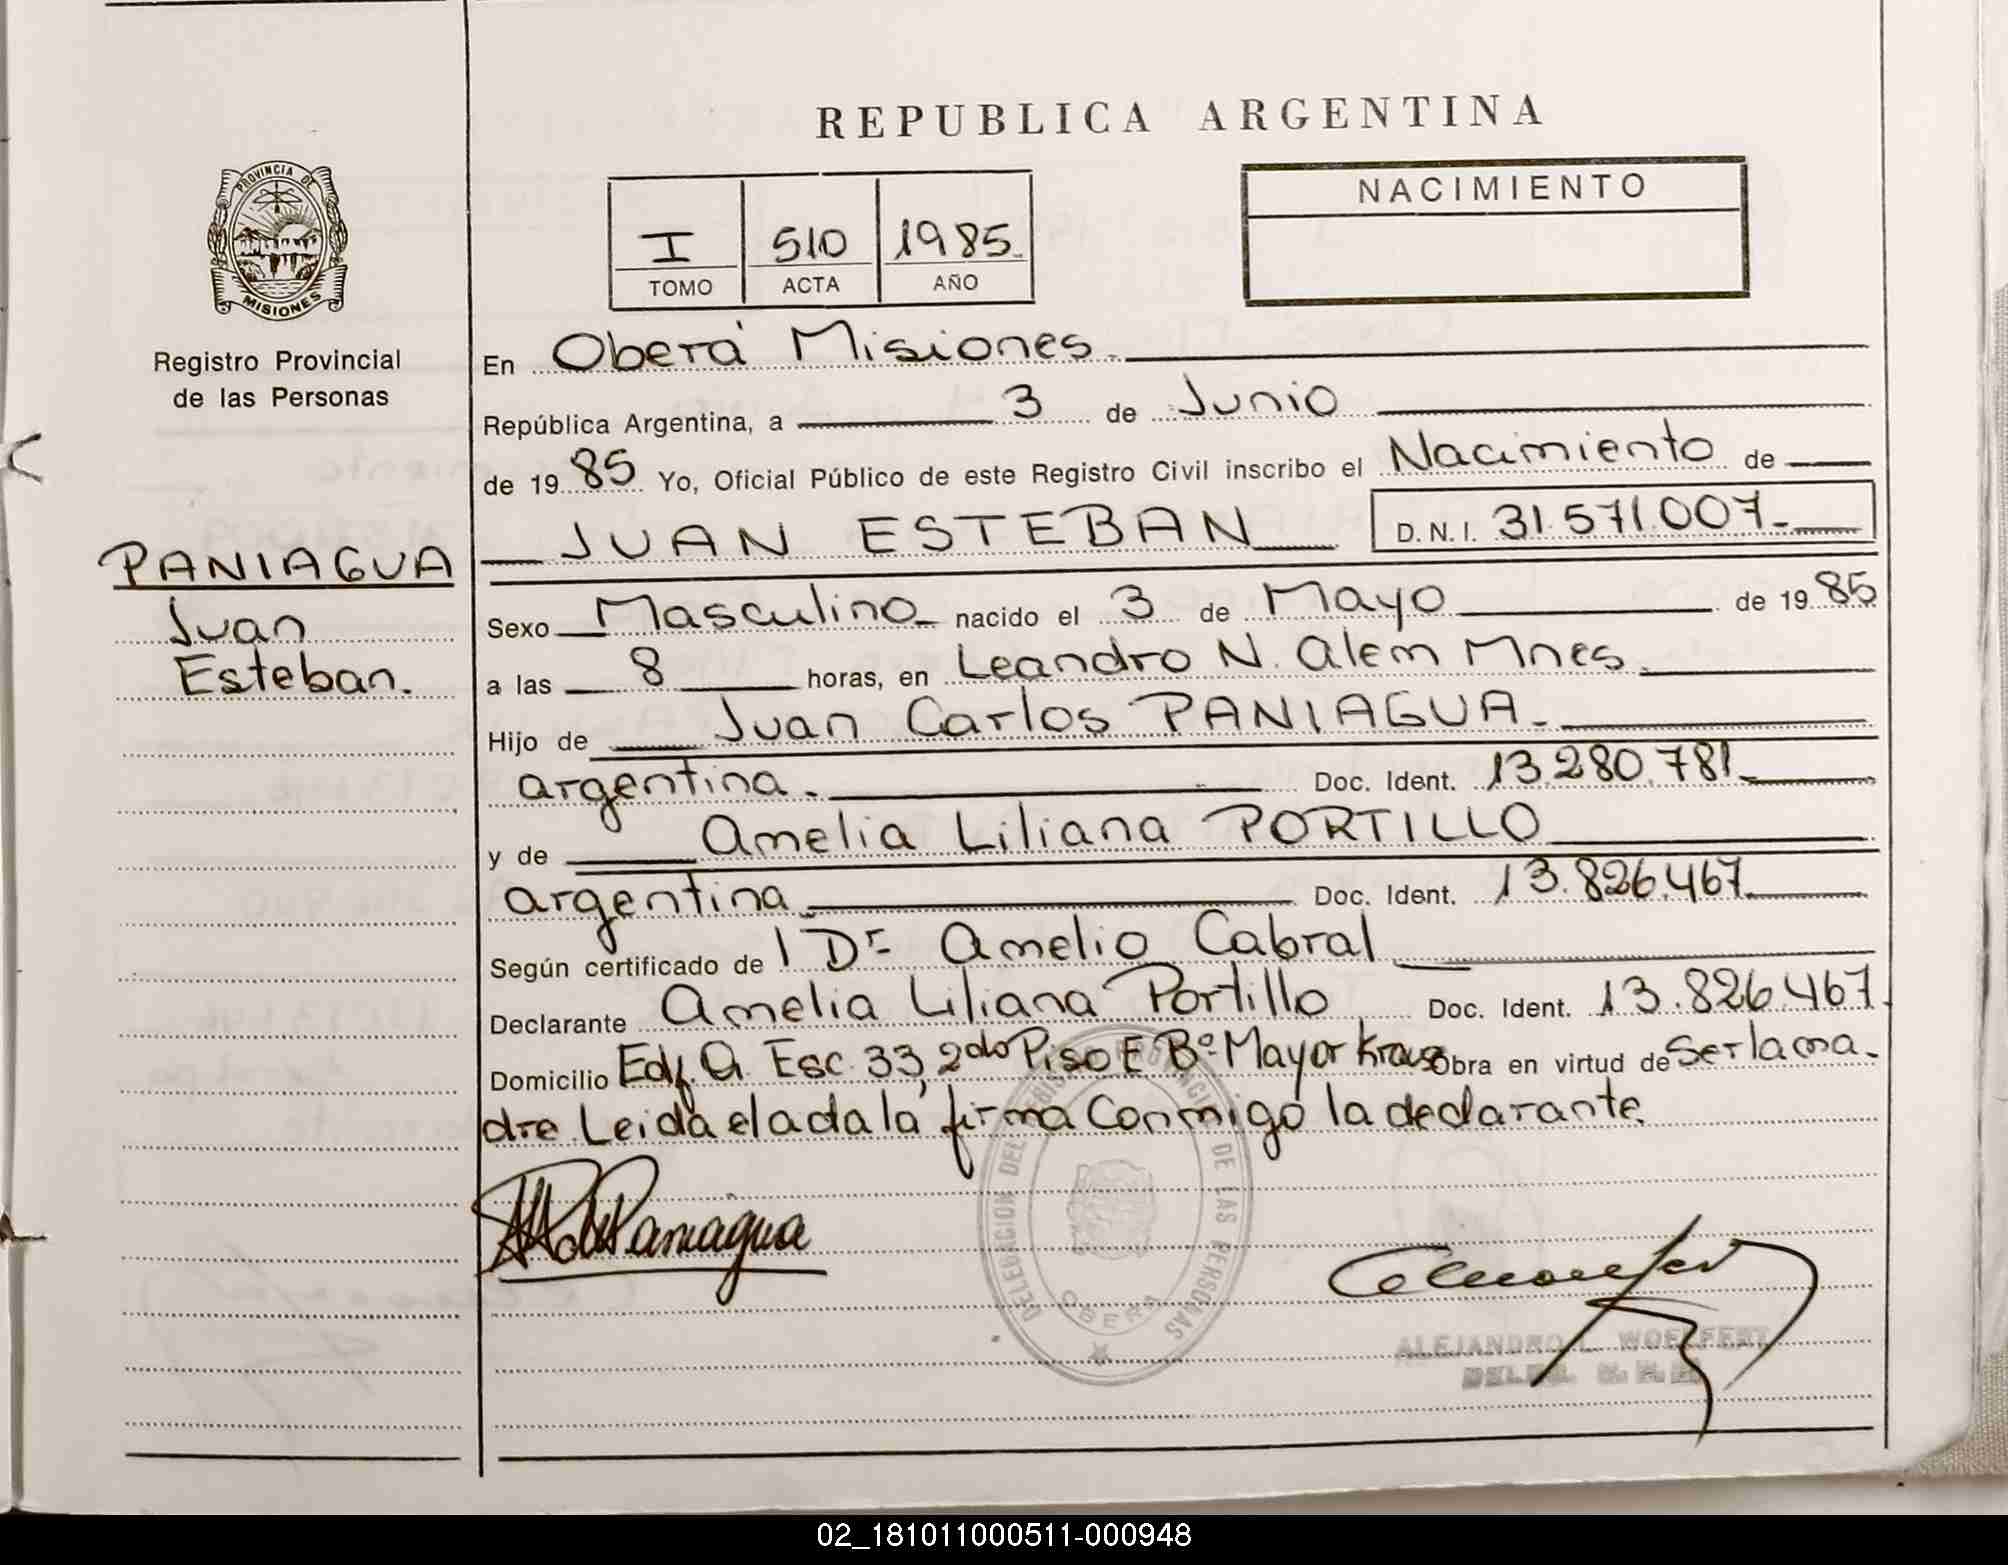 REPUBLICA ARGENTINA
PROVINCIA DE
MISIONES
Registro Provincial
de las Personas
I 510 1985
TOMO ACTA AÑO
NACIMIENTO
En Oberá Misiones
República Argentina, a 3 de Junio
de 1985 Yo, Oficial Público de este Registro Civil inscribo el Nacimiento de
JUAN ESTEBAN D.N.I. 31.571.007
PANIAGUA
Juan
Esteban.
Sexo Masculino nacido el 3 de Mayo de 1985
a las 8 horas, en Leandro N. Alem Mnes.
Hijo de Juan Carlos PANIAGUA
argentina. Doc. Ident. 13.280.781
y de Amelia Liliana PORTILLO
argentina Doc. Ident. 13.826.467
Según certificado de l Dr Amelio Cabral
Declarante Amelia Liliana Portillo Doc. Ident. 13.826.467
Domicilio Edf. A Esc. 33, 2do Piso E Bº Mayor Kraus Obra en virtud de Ser la ma
dre Leida el acta la firma Conmigo la declarante.
de Paniagua
DELEGACION DEL REGISTRO PROVINCIAL DE LAS PERSONAS
OBERA
ALEJANDRO L. WOELFERT
02_181011000511-000948